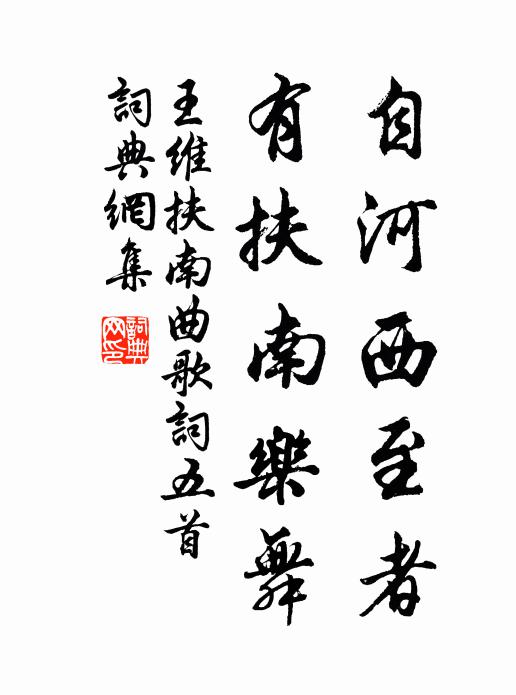 自河西至者
有扶南樂舞
王維扶南曲歌詞五首
詞典網集
詞典
网印